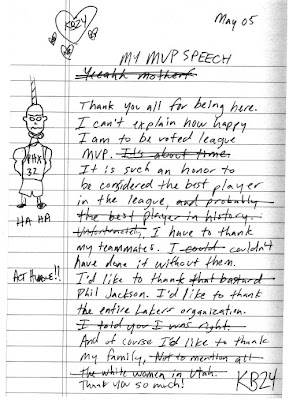 May 05
KB24
MY MVP SPEECH
Yeeahh motherf
Thank you all for being here.
I can't explain how happy
I am to be voted league
MVP. It's about time.
It is such an honor to
be considered the best player
in the league, and probably
the best player in history.
Unfortunately, I have to thank
my teammates. I could couldn't
have done it without them.
I'd like to thank that bastard
Phil Jackson. I'd like to thank
the entire Lakers organization.
I told you I was right.
And of course I'd like to thank
my family, Not to mention all
the white women in Utah.
Thank you so much!
KB24
PHX
32
HA HA
ACT HUMBLE!!